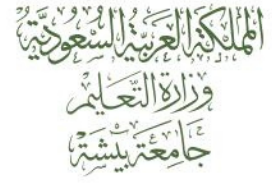 المملكة العربية السعودية
وزارة التعليم
جامعة بيشة